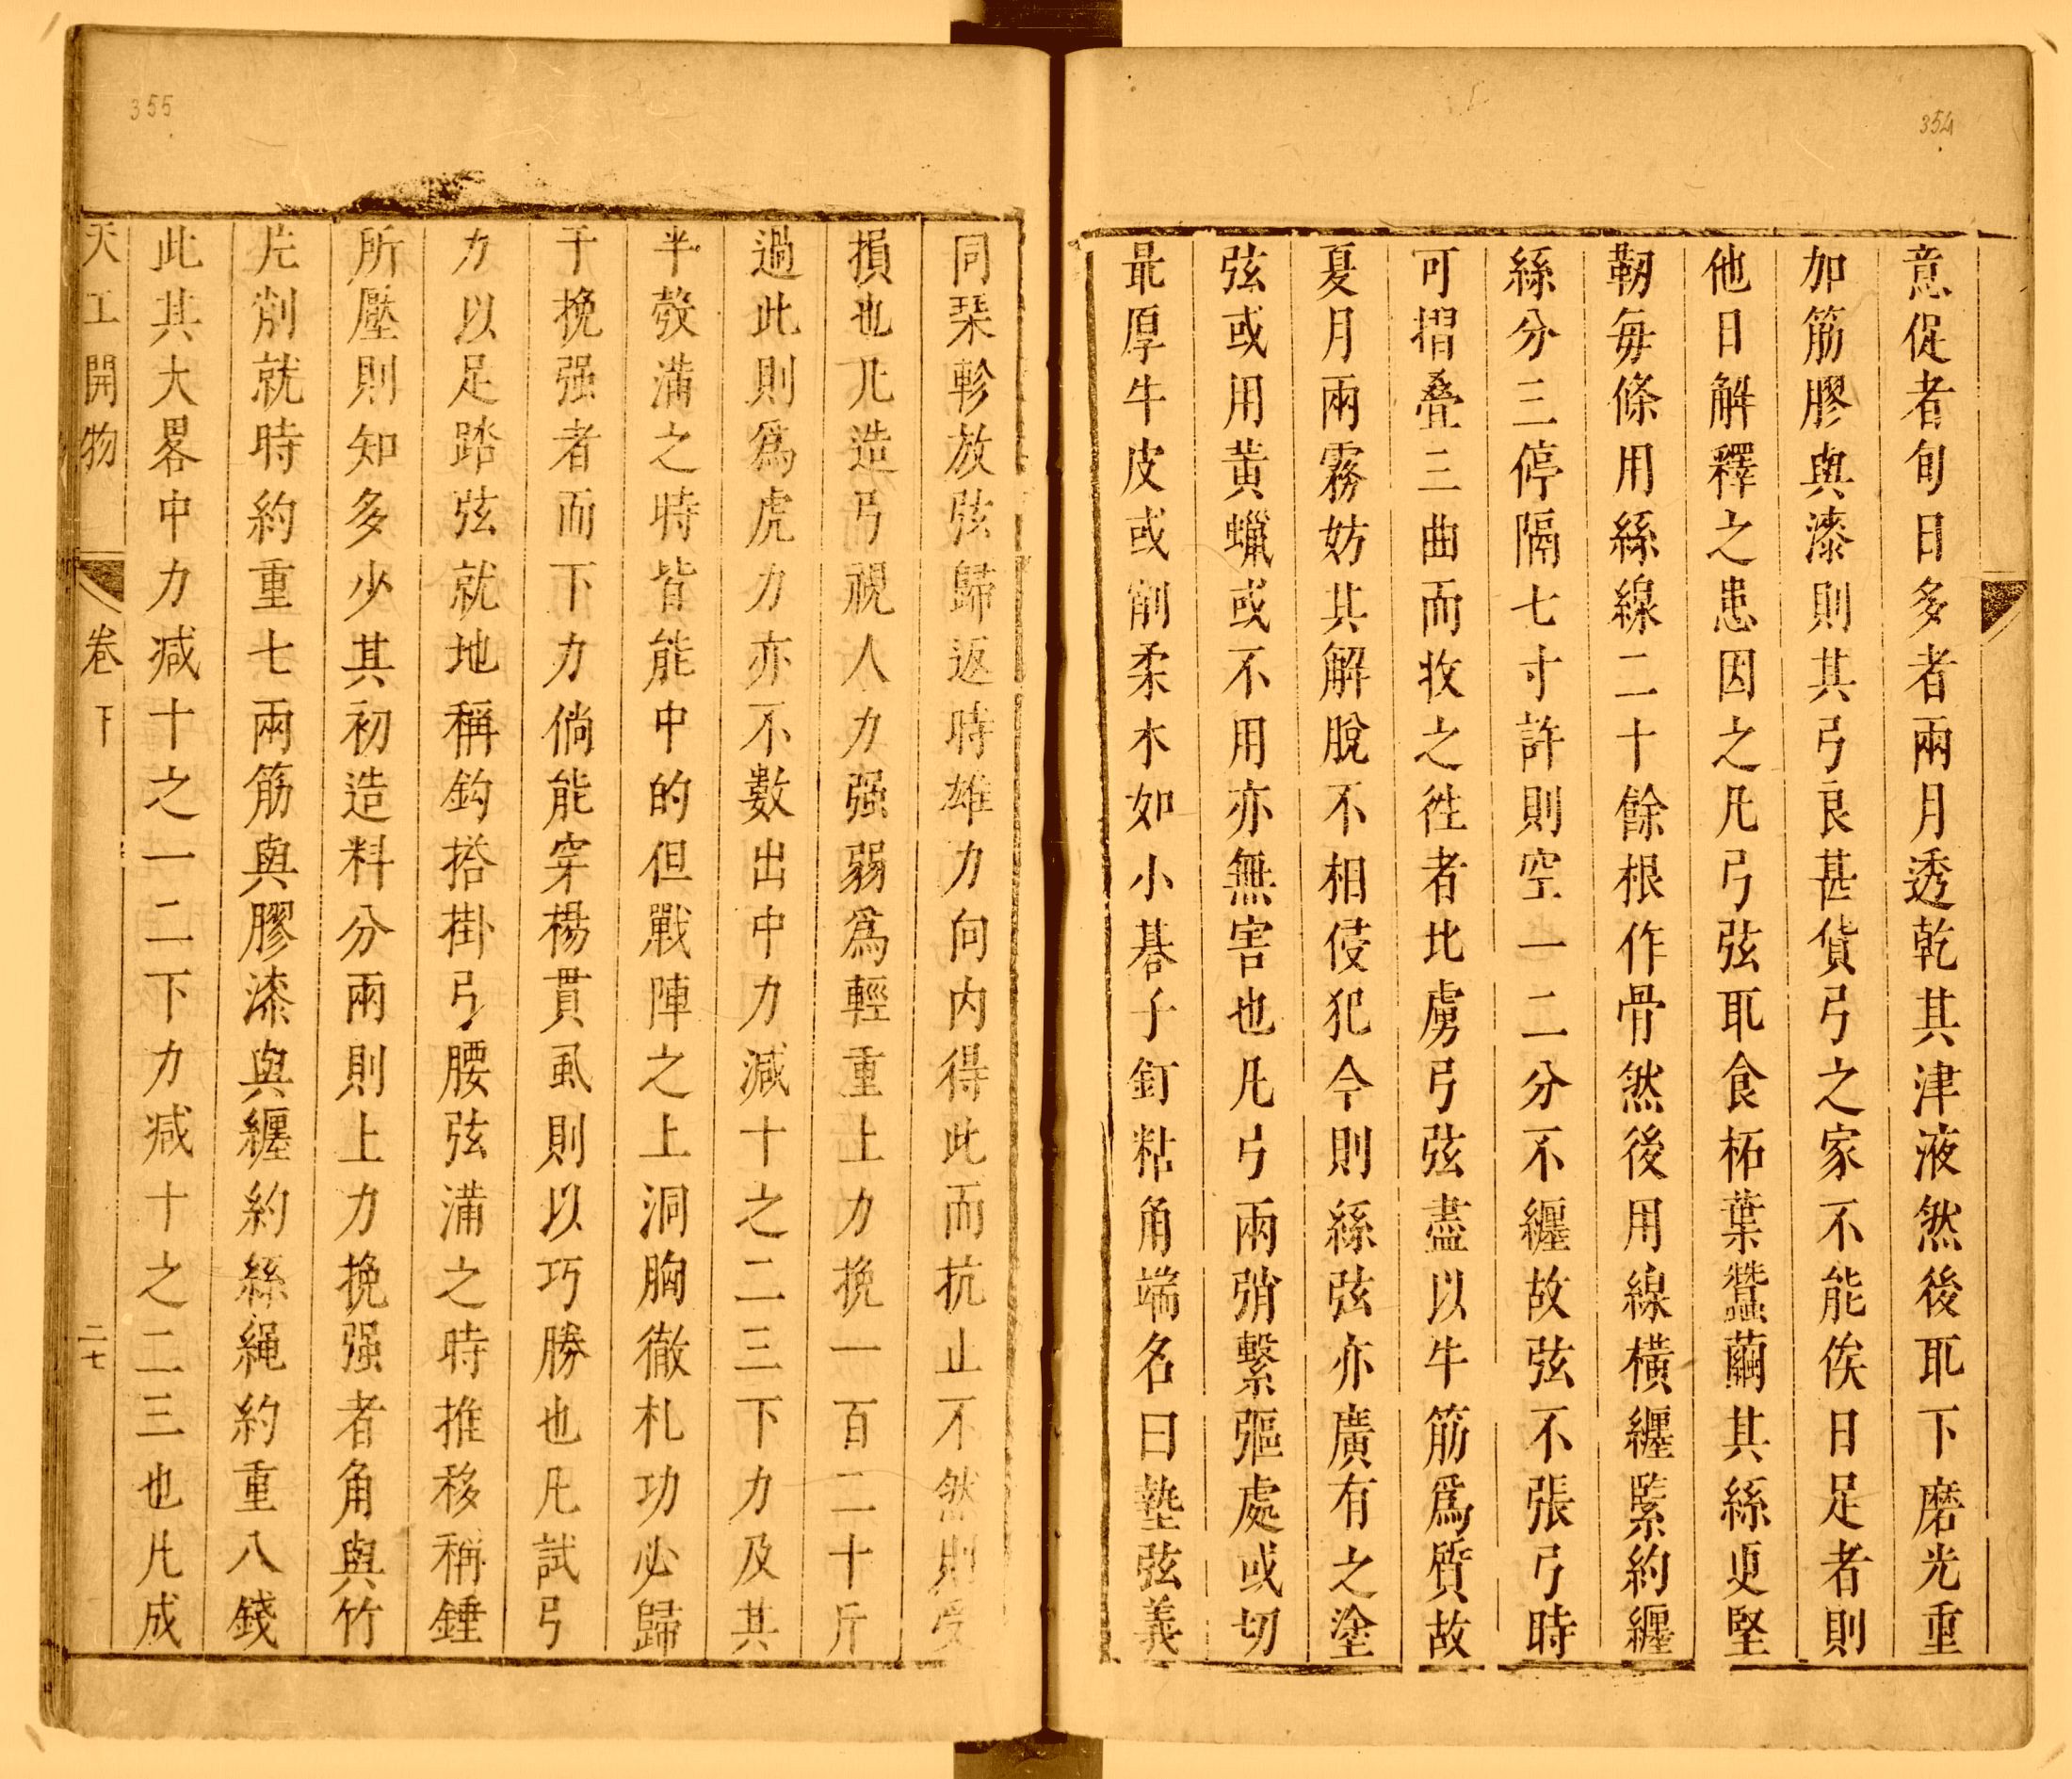 354
意促者旬日多者兩月透乾其津液然後取下磨光重
加筋膠與漆則其弓良甚貨弓之家不能俟日足者則
他日解釋之患因之凡弓弦取食柘葉蠶繭其絲更堅
韌每條用絲線二十餘根作骨然後用線橫纏緊約纏
絲分三停隔七寸許則空一二分不纏故弦不張弓時
可摺疊三曲而收之徃者北虜弓弦盡以牛筋爲質故
夏月雨霧妨其解脫不相侵犯今則絲弦亦廣有之塗
弦或用黃蠟或不用亦無害也凡弓兩弰繫彄處或切
最厚牛皮或削柔木如小棊子釘粘角端名曰墊弦義
355
同栞軫放弦歸返時雄力向内得此而抗止不然則受
損也凡造弓視人力强弱爲輕重上力挽一百二十斤
過此則爲虎力亦不數出中力減十之二三下力及其
半彀滿之時皆能中的但戰陣之上洞胸徹札功必歸
于挽强者而下力倘能穿楊貫虱則以巧勝也凡試弓
力以足踏弦就地稱鈎搭掛弓腰弦滿之時推移稱錘
所壓則知多少其初造料分兩則上力挽强者角與竹
片削就時約重七兩筋與膠漆與纏約絲繩約重八錢
此其大畧中力減十之一二下力減十之二三也凡成
天工開物 卷下 二七